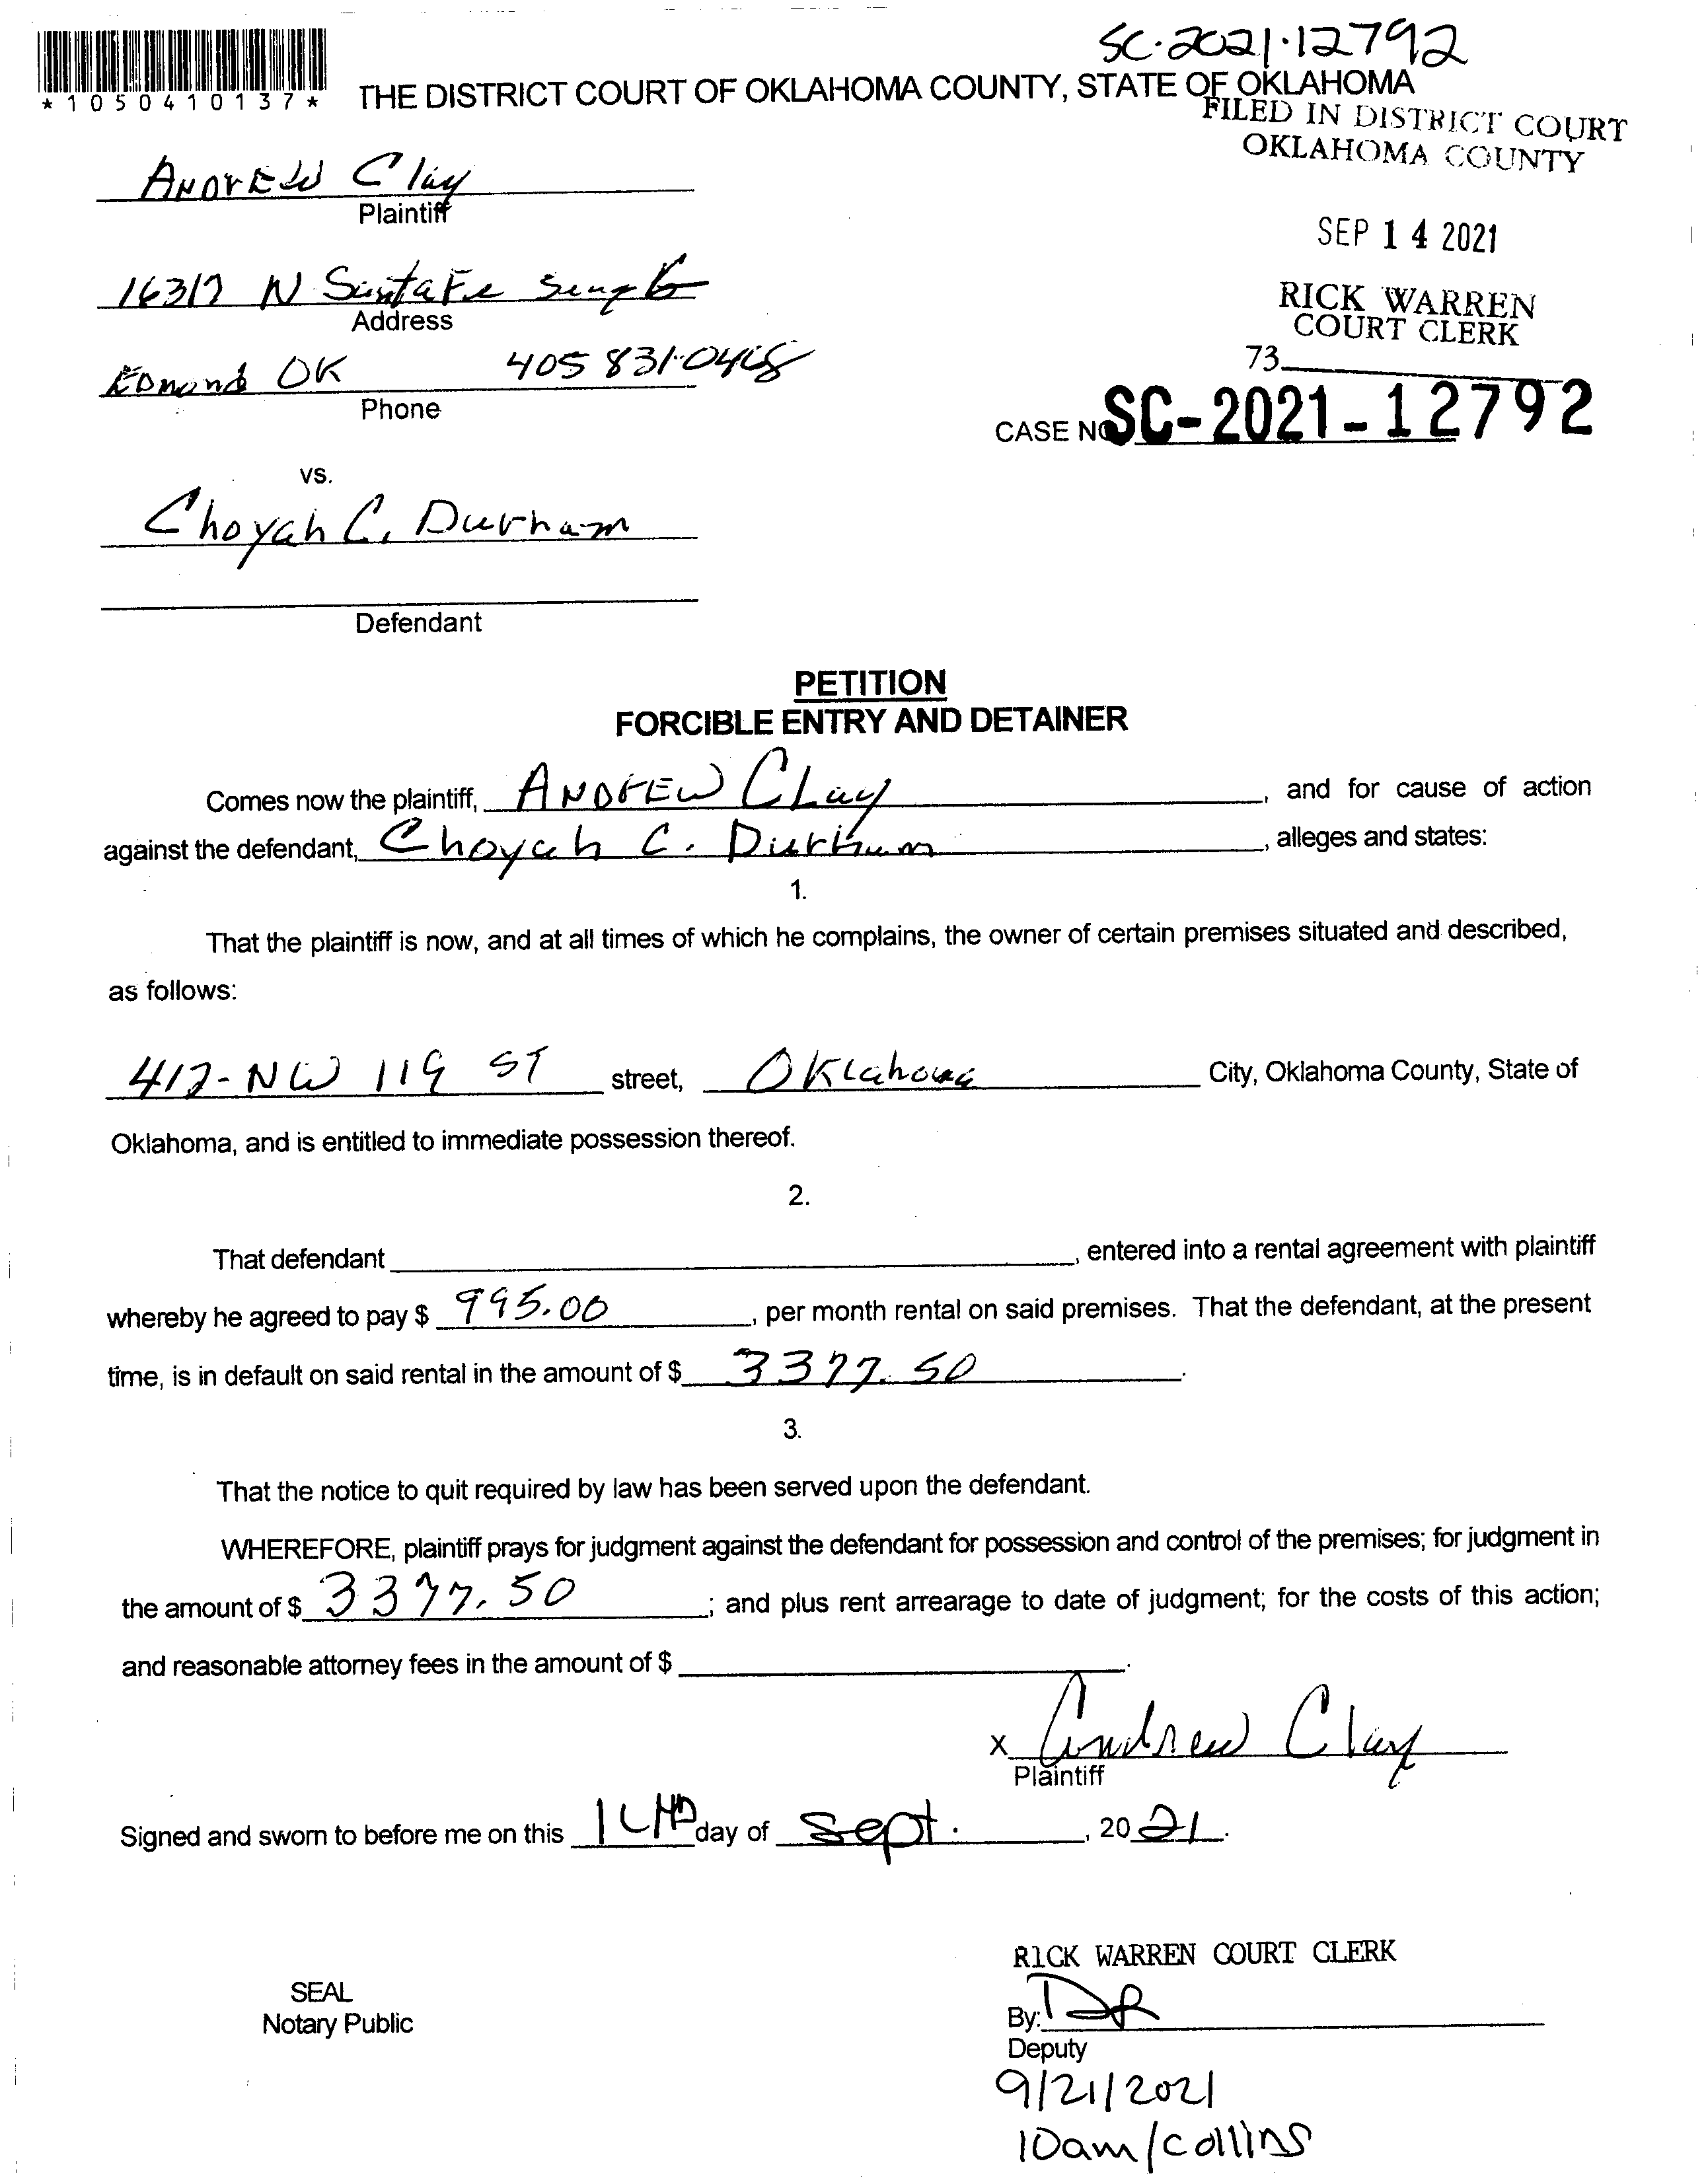 SC-2021-12792
*1050410137*
THE DISTRICT COURT OF OKLAHOMA COUNTY, STATE OF OKLAHOMA
FILED IN DISTRICT COURT
OKLAHOMA COUNTY
ANDrEW Clay
Plaintiff
SEP 14 2021
16317 N SantaFe
Address
RICK WARREN
COURT CLERK
EDmond OK 405 831-0468
Phone
73
CASE NO. SC-2021-12792
vs.
Choyah C. Durham
Defendant
PETITION
FORCIBLE ENTRY AND DETAINER
Comes now the plaintiff, ANDrEW CLay, and for cause of action
against the defendant, Choyah C. Durham, alleges and states:
1.
That the plaintiff is now, and at all times of which he complains, the owner of certain premises situated and described,
as follows:
417-NW 119 ST street, OKlahoma City, Oklahoma County, State of
Oklahoma, and is entitled to immediate possession thereof.
2.
That defendant , entered into a rental agreement with plaintiff
whereby he agreed to pay $ 995.00, per month rental on said premises. That the defendant, at the present
time, is in default on said rental in the amount of $ 3377.50.
3.
That the notice to quit required by law has been served upon the defendant.
WHEREFORE, plaintiff prays for judgment against the defendant for possession and control of the premises; for judgment in
the amount of $ 3377.50; and plus rent arrearage to date of judgment; for the costs of this action;
and reasonable attorney fees in the amount of $ .
x Andrew Clay
Plaintiff
Signed and sworn to before me on this day of Sept., 2021.
RICK WARREN COURT CLERK
SEAL
Notary Public
By: DR
Deputy
9/21/2021
10am/collins